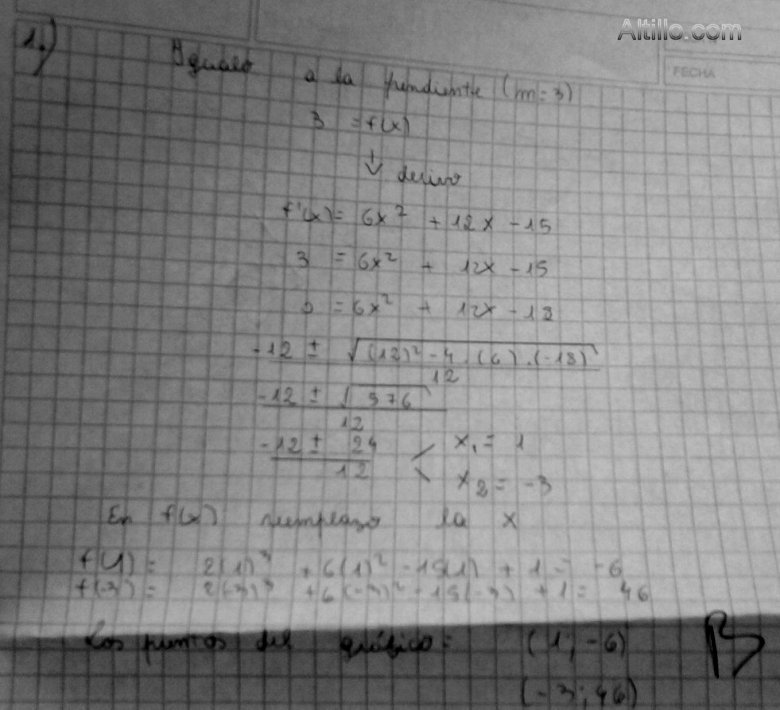 Altillo.com
FECHA
1.)
Igualo a la pendiente (m=3)
3 = f(x)
↓ derivo
f'(x) = 6x² + 12x - 15
3 = 6x² + 12x - 15
0 = 6x² + 12x - 18
-12 ± √(12)² - 4 . (6) . (-18)
12
-12 ± √576
12
-12 ± 24
12
x₁ = 1
x₂ = -3
En f(x) reemplazo la x
f(1) = 2(1)³ + 6(1)² - 15(1) + 1 = -6
f(-3) = 2(-3)³ + 6(-3)² - 15(-3) + 1 = 46
Los puntos del gráfico: (1; -6)
(-3; 46)
B